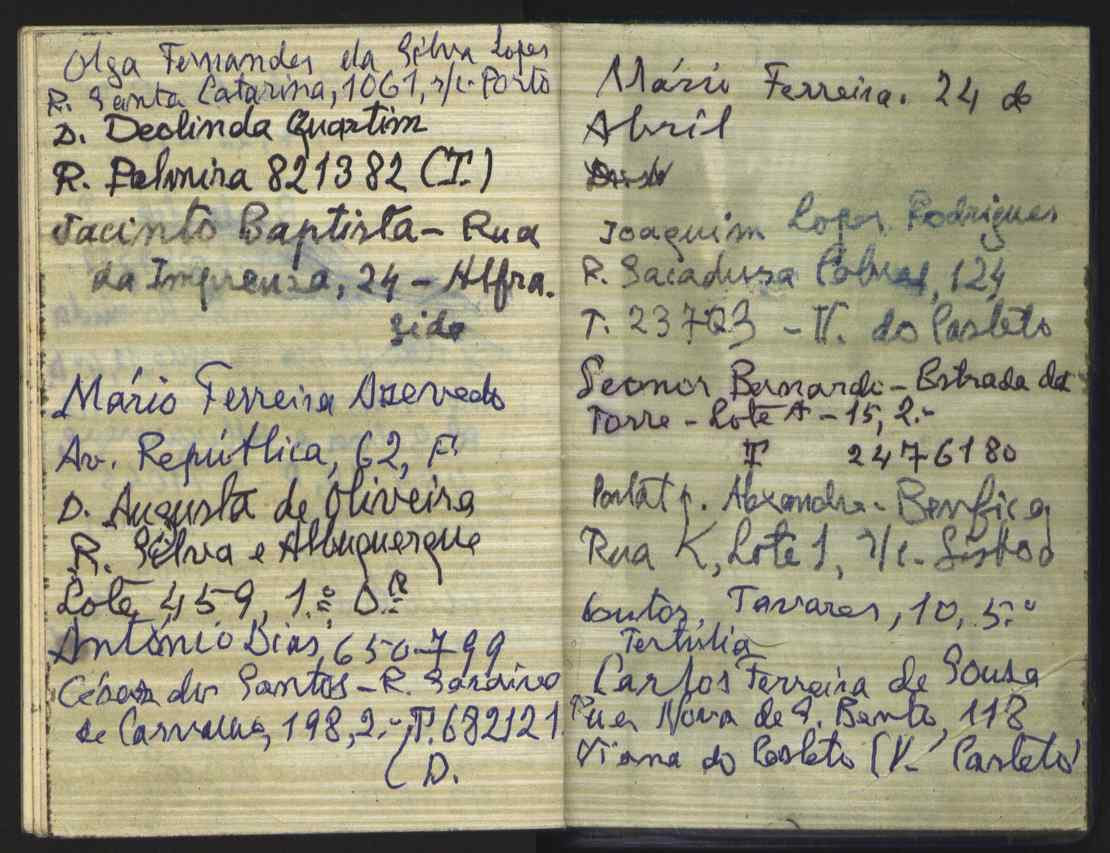 Olga Fernandes da Silva Lopes
R. Santa Catarina, 1061, r/c. Porto
D. Deolinda Quartim
R. Palmira 821382 (T.)
Jacinto Baptista - Rua
da Imprensa, 24 - Alfra.
gide
Mário Ferreira Azevedo
Av. República, 62, F
D. Augusta de Oliveira
R. Silva e Albuquerque
Lote, 459, 1.º D.
António Dias, 650799
César dos Santos - R. Saraiva
de Carvalho, 198, 2.º T. 682121
(D.
Mário Ferreira. 24 de
Abril
Joaquim Lopes Rodrigues
R. Sacadura Cabral, 124
T. 23723 - V. do Castelo
Leonor Bernardo - Estrada da
Torre - Lote A - 15, 2.º
T 2476180
p. Alexandre - Benfica
Rua K, Lote 1, r/c. Lisboa
Tavares, 10, 5.º
Tertúlia
Carlos Ferreira de Sousa
Rua Nova de S. Bento, 118
Viana do Castelo (V. Castelo)